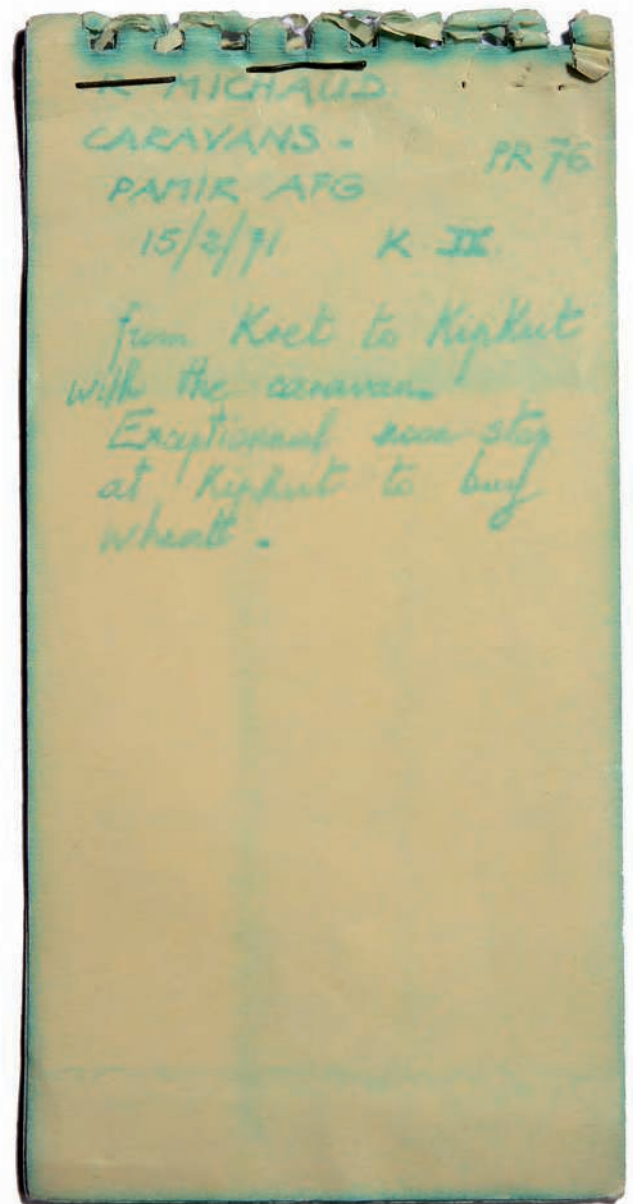 R MICHAUD
CARAVANS.
PR 76
PAMIR AFG
15/2/71 K II
from Kret to Kipkut
with the caravan.
Exceptionnal noon stop
at Kipkut to buy
wheatt.